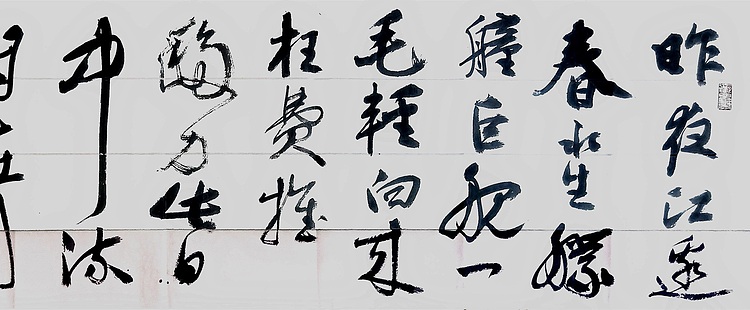 昨夜江邊
春水生艨
艟巨舰一
毛輕向來
枉費推
移力此日
中流